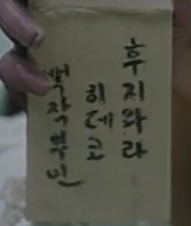 후지와라
히데코
백작부인